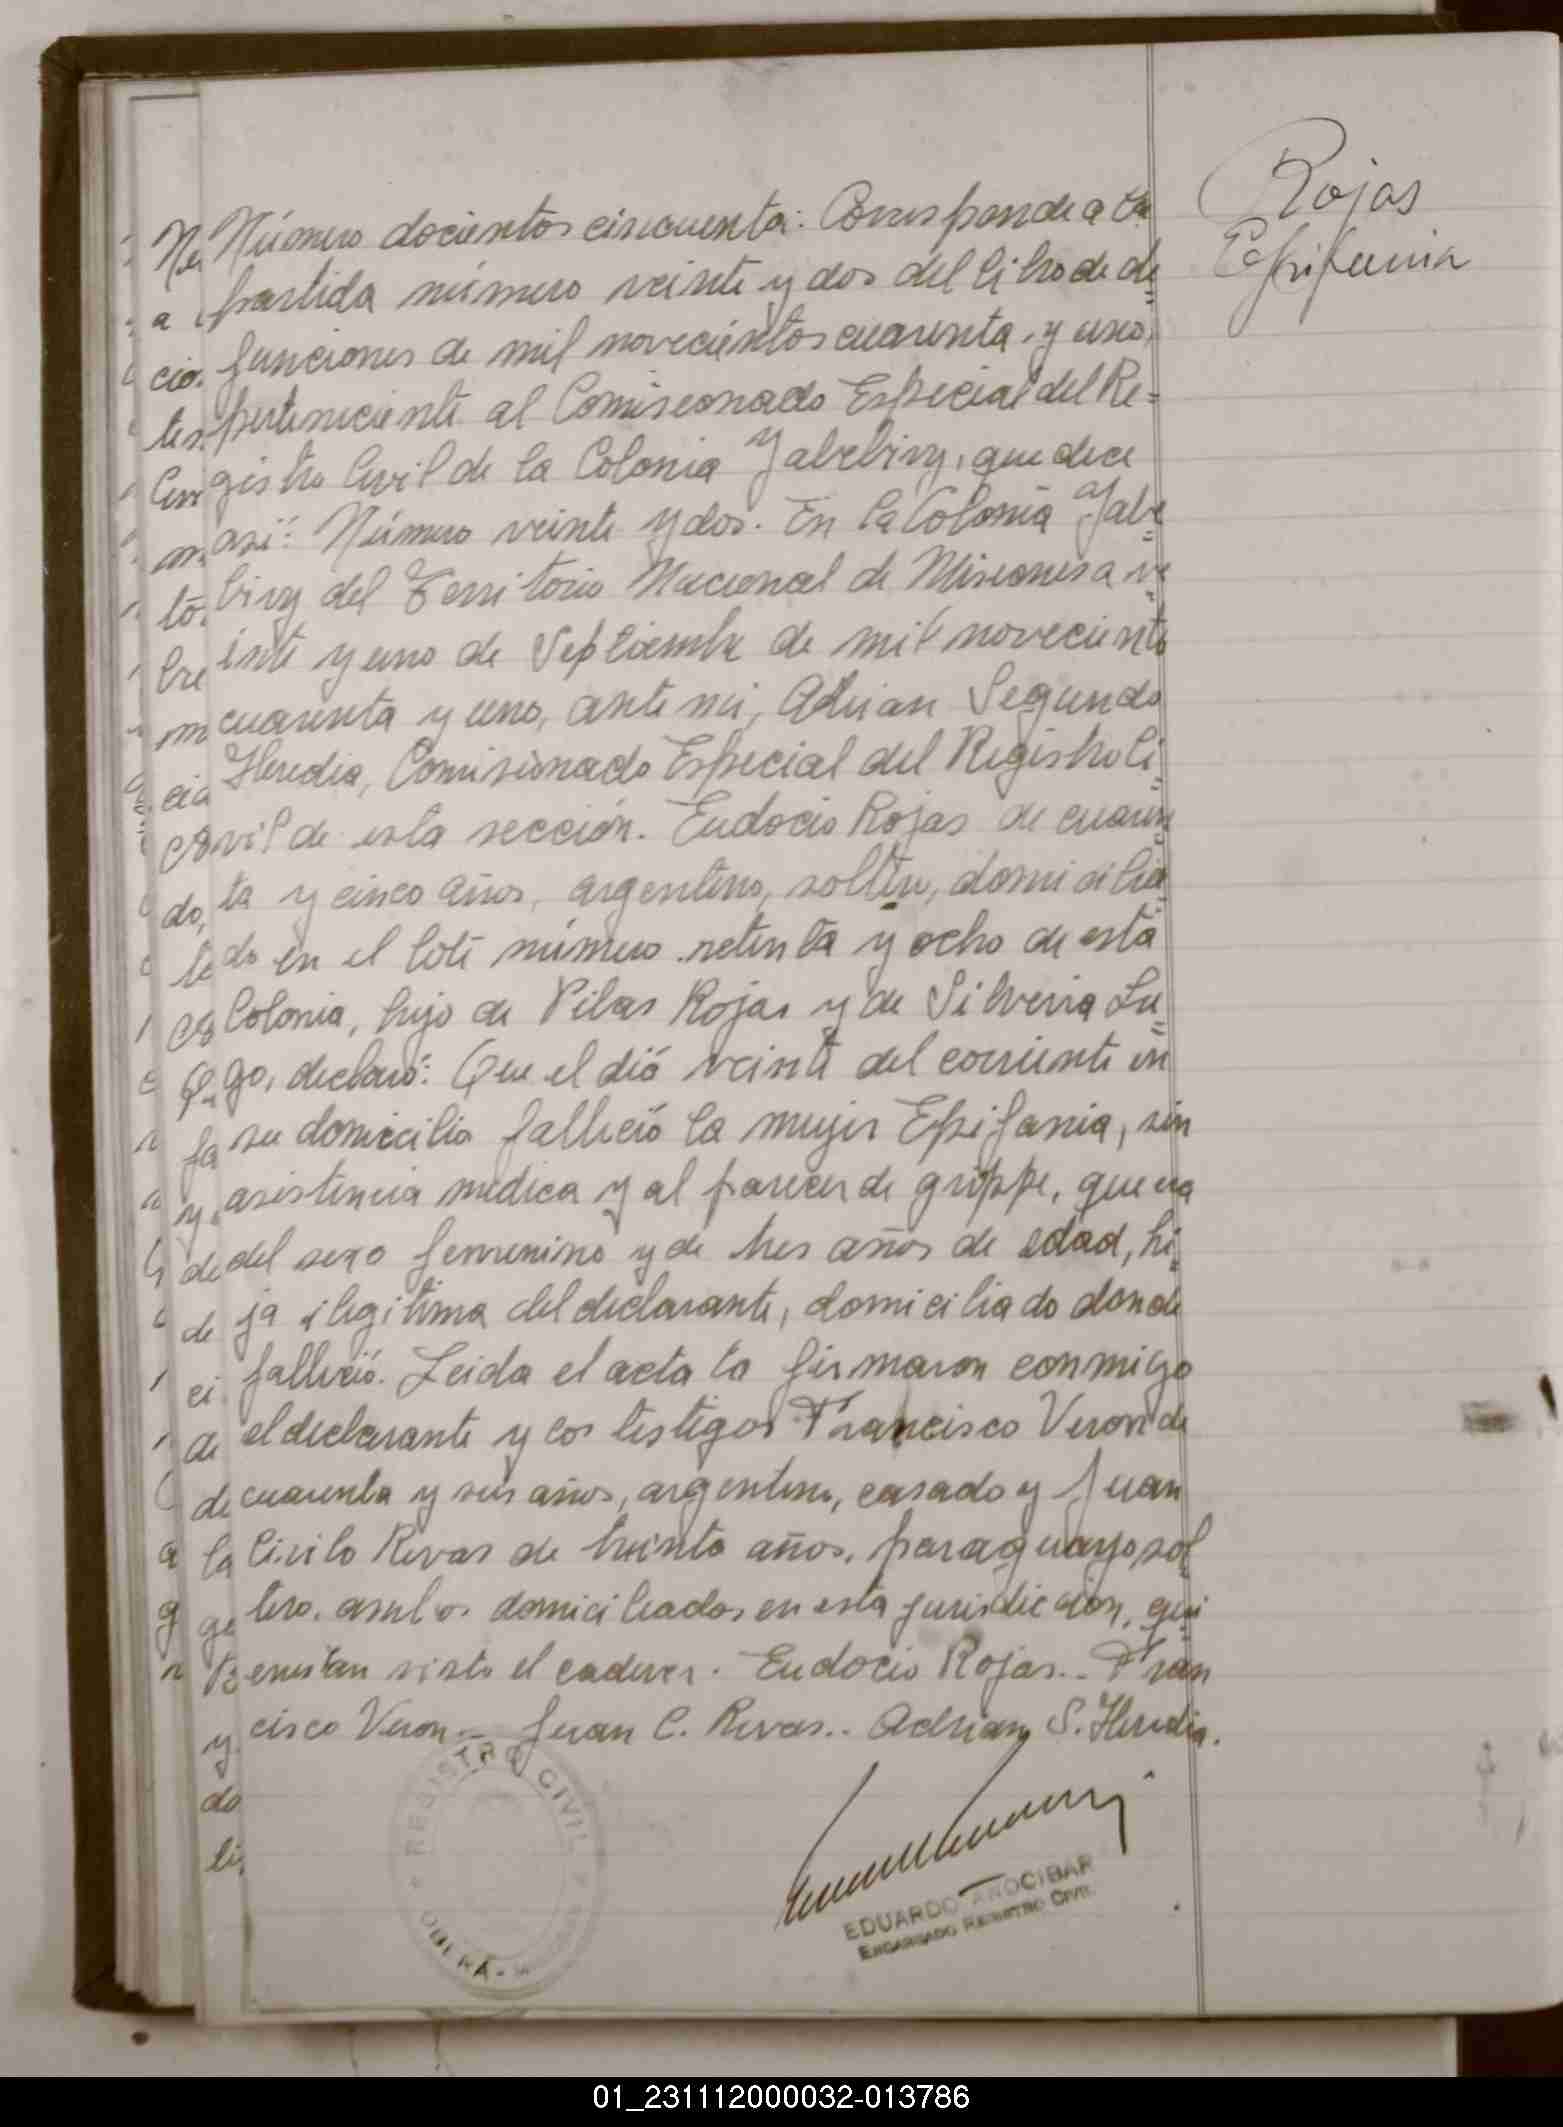 Rojas
Epifania
Número docientos cincuenta: Corresponde a la
partida número veinte y dos del libro de de=
funciones de mil novecientos cuarenta y uno,
perteneciente al Comiseonado Especial del Re=
gistro Civil de la Colonia Yabebiry, que dece
asi: Número veinte y dos. En la Colonia Yabe=
biry del Territorio Nacional de Misiones a ve=
inte y uno de Septiembre de mil novecientos
cuarenta y uno, ante mi, Adrian Segundo
Heredia, Comisionado Especial del Registro Ci=
vil de esta sección. Eudocio Rojas de cuaren=
ta y cinco años, argentino, soltero, domicilia=
do en el lote número setenta y ocho de esta
Colonia, hijo de Pilar Rojas y de Silveria Lu=
go, declaró: Que el diá veinte del corriente en
su domicilio falleció la mujer Epifania, sin
asistencia medica y al parecer de grippe, que era
del sexo femenino y de tres años de edad, hi=
ja ilegitima del declarante, domiciliado donde
falleció. Leida el acta la firmaron conmigo
el declarante y los testigos Francisco Veron de
cuarenta y seis años, argentino, casado y Juan
Cirilo Rivas de treinta años, paraguayo, sol=
tero, ambos domiciliados en esta jurisdiccion, qui=
enes han visto el cadaver. Eudocio Rojas.- Fran
cisco Veron.- Juan C. Rivas.- Adrian S. Heredia.
REGISTRO CIVIL
OBERÁ
EDUARDO ANOCIBAR
ENCARGADO REGISTRO CIVIL
01_231112000032-013786